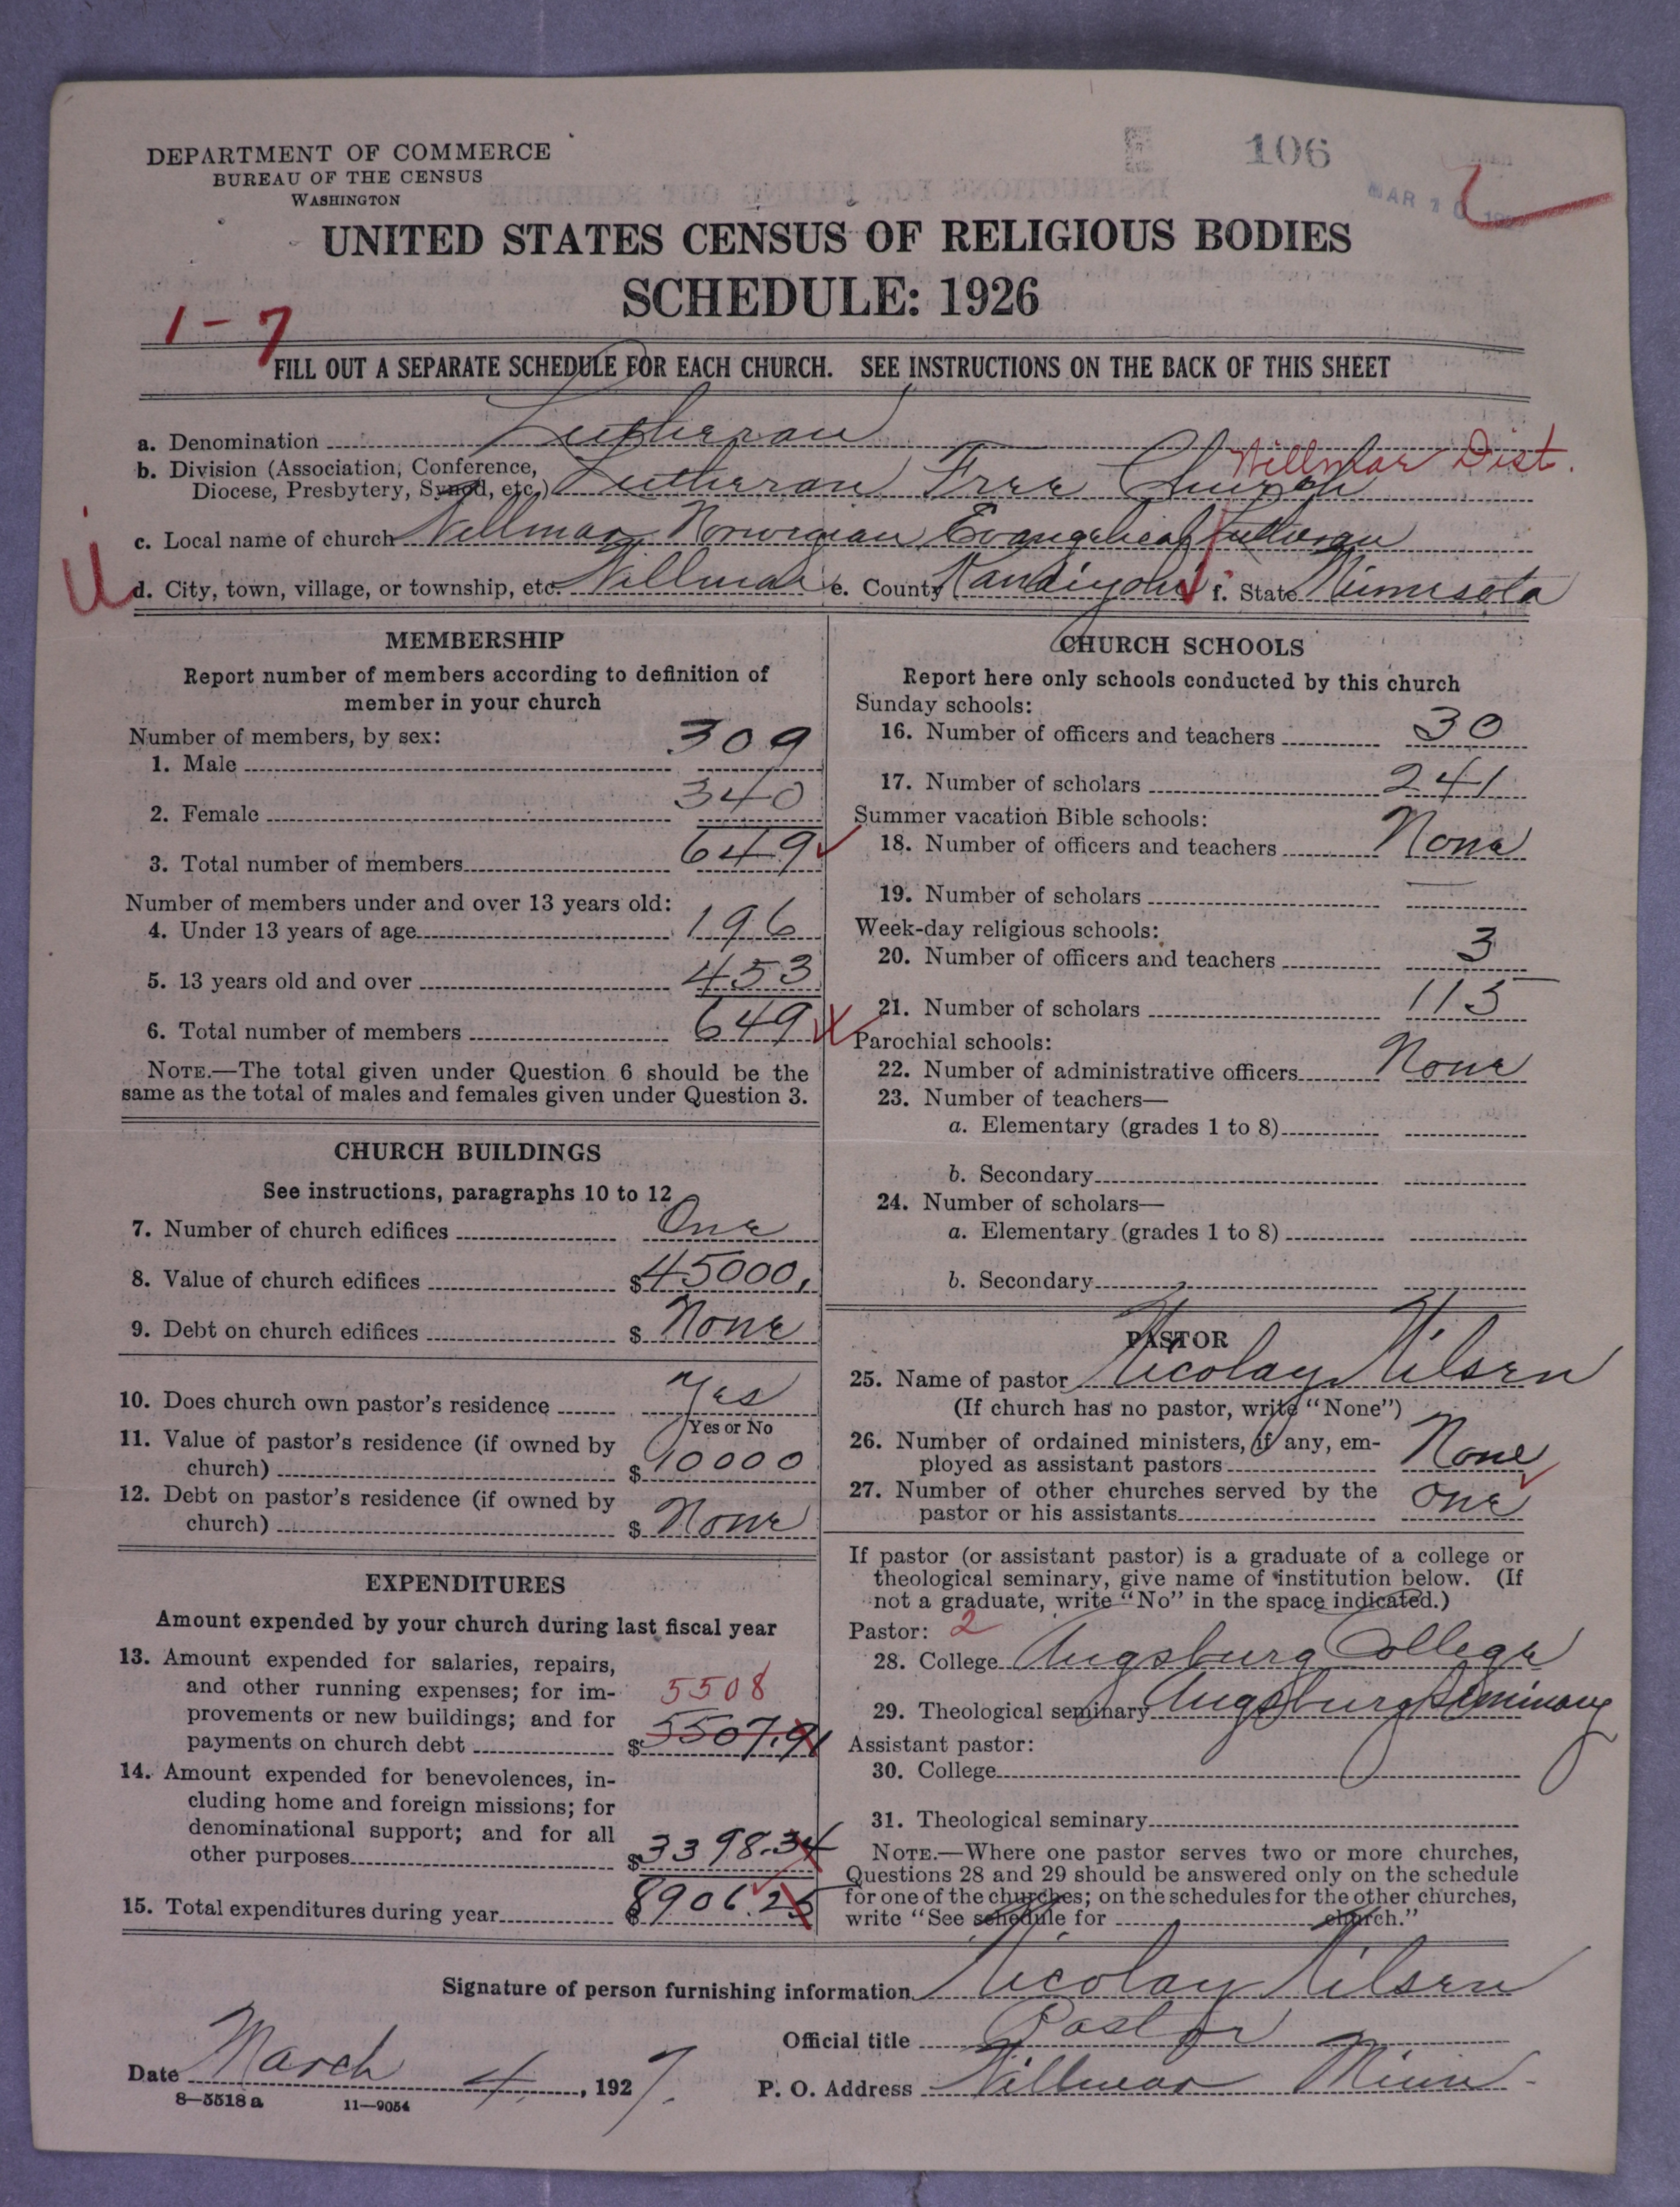 DEPARTMENT OF COMMERCE
BUREAU OF THE CENSUS
WASHINGTON
106
MAR 10
UNITED STATES CENSUS OF RELIGIOUS BODIES
SCHEDULE: 1926
1-7
FILL OUT A SEPARATE SCHEDULE FOR EACH CHURCH. SEE INSTRUCTIONS ON THE BACK OF THIS SHEET
a. Denomination Lutheran
Willmar Dist.
b. Division (Association, Conference,
Diocese, Presbytery, Synod, etc.) Lutheran Free Church
c. Local name of church Willmar Norwegian Evangelical Lutheran
d. City, town, village, or township, etc. Willmar e. County Kandiyohi f. State Minnesota
MEMBERSHIP
Report number of members according to definition of
member in your church
Number of members, by sex:
1. Male 309
2. Female 340
3. Total number of members 649
Number of members under and over 13 years old:
4. Under 13 years of age 196
5. 13 years old and over 453
6. Total number of members 649
NOTE.—The total given under Question 6 should be the
same as the total of males and females given under Question 3.
CHURCH BUILDINGS
See instructions, paragraphs 10 to 12
7. Number of church edifices One
8. Value of church edifices $45000.
9. Debt on church edifices $ None
10. Does church own pastor's residence Yes
Yes or No
11. Value of pastor's residence (if owned by
church) $10000
12. Debt on pastor's residence (if owned by
church) $ None
EXPENDITURES
Amount expended by your church during last fiscal year
13. Amount expended for salaries, repairs,
and other running expenses; for im- 5508
provements or new buildings; and for
payments on church debt $5507.91
14. Amount expended for benevolences, in-
cluding home and foreign missions; for
denominational support; and for all
other purposes $3398.34
15. Total expenditures during year $8906.25
CHURCH SCHOOLS
Report here only schools conducted by this church
Sunday schools:
16. Number of officers and teachers 30
17. Number of scholars 241
Summer vacation Bible schools:
18. Number of officers and teachers None
19. Number of scholars
Week-day religious schools:
20. Number of officers and teachers 3
21. Number of scholars 115
Parochial schools:
22. Number of administrative officers None
23. Number of teachers—
a. Elementary (grades 1 to 8)
b. Secondary
24. Number of scholars—
a. Elementary (grades 1 to 8)
b. Secondary
PASTOR
25. Name of pastor Nicolay Nilsen
(If church has no pastor, write "None")
26. Number of ordained ministers, if any, em-
ployed as assistant pastors None
27. Number of other churches served by the
pastor or his assistants One
If pastor (or assistant pastor) is a graduate of a college or
theological seminary, give name of institution below. (If
not a graduate, write "No" in the space indicated.)
Pastor: 2
28. College Augsburg College
29. Theological seminary Augsburg Seminary
Assistant pastor:
30. College
31. Theological seminary
NOTE.—Where one pastor serves two or more churches,
Questions 28 and 29 should be answered only on the schedule
for one of the churches; on the schedules for the other churches,
write "See schedule for church."
Signature of person furnishing information Nicolay Nilsen
Official title Pastor
Date March 4, 1927. P. O. Address Willmar Minn.
8—5518a 11—9054